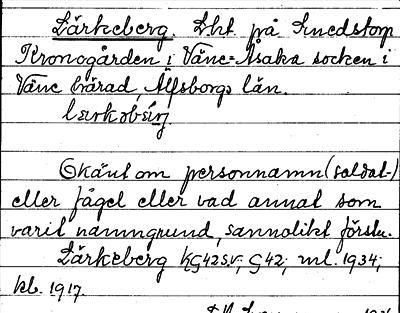 Lärkeberg. Lht. på Smedstorp
Kronogården i Väne-Åsaka socken i
Väne härad, Älfsborgs län.
Okänt om personnamn (soldat-)
eller fågel eller vad annat som
varit namngrund, sannolikt förstn.
Lärkeberg KG42SV, G42, ml. 1934;
kb. 1917.